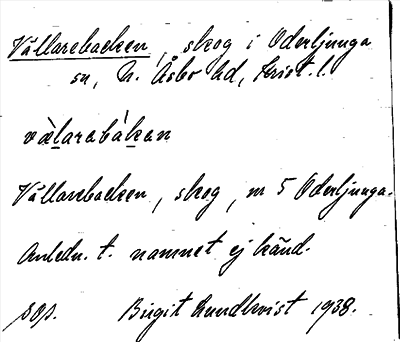 Vällarebacken, skog i Oderljunga
sn, N. Åsbo hd, Krist. l.
væ̀larabákan
Vällarebacken, skog, nr 5 Oderljunga.
Anledn. t. namnet ej känd.
Birgit Lundkvist 1938.